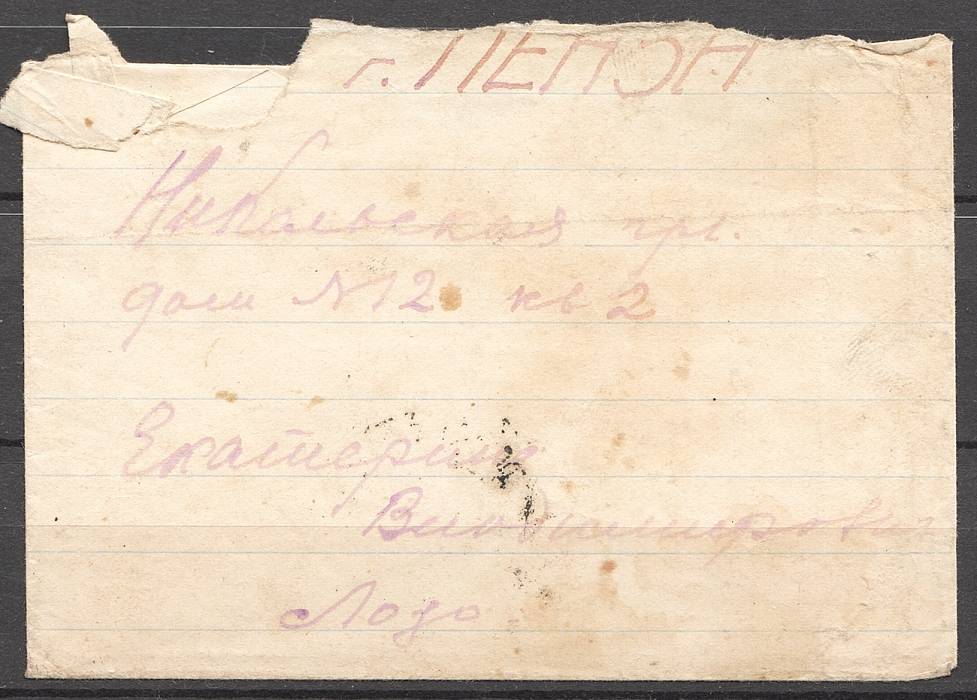 г. ПЕНЗА
Никольская ул.
дом №12 кв 2
Екатерине
Владимировне
Лодо